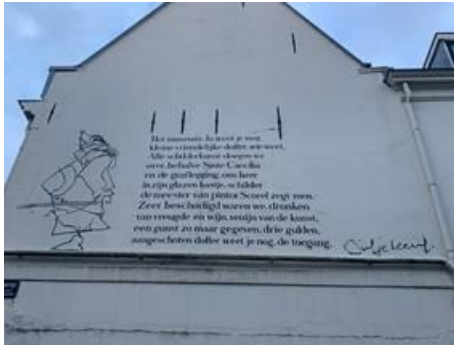 Het museum. Ja weet je nog
kleine vriendelijke doffer, wie weet.
Alle schilderkunst sloegen we
over, behalve Sinte Caecilia
en de graflegging ons heer
in zijn glazen kastje, schilder
de meester van pintor Scorel zegt men.
Zeer beschadigd waren we, dronken
van vreugde en wijn, venijn van de kunst,
een gunst zo maar gegeven, drie gulden,
aangeschoten doffer weet je nog, de toegang.